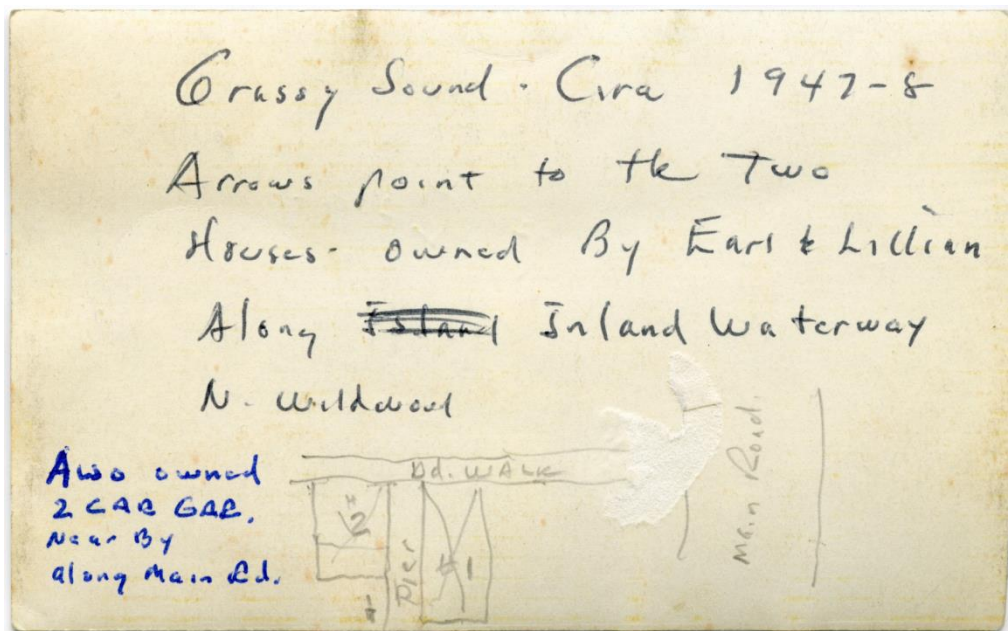 Grassy Sound - Cira 1947-8
Arrows point to the Two
Houses - owned By Earl & Lillian
Along Island Inland Waterway
N. Wildwood
Also owned
2 CAR GAR.
Near By
along Main Rd.
Bd. WALK
#2
Pier
#1
Main Road.